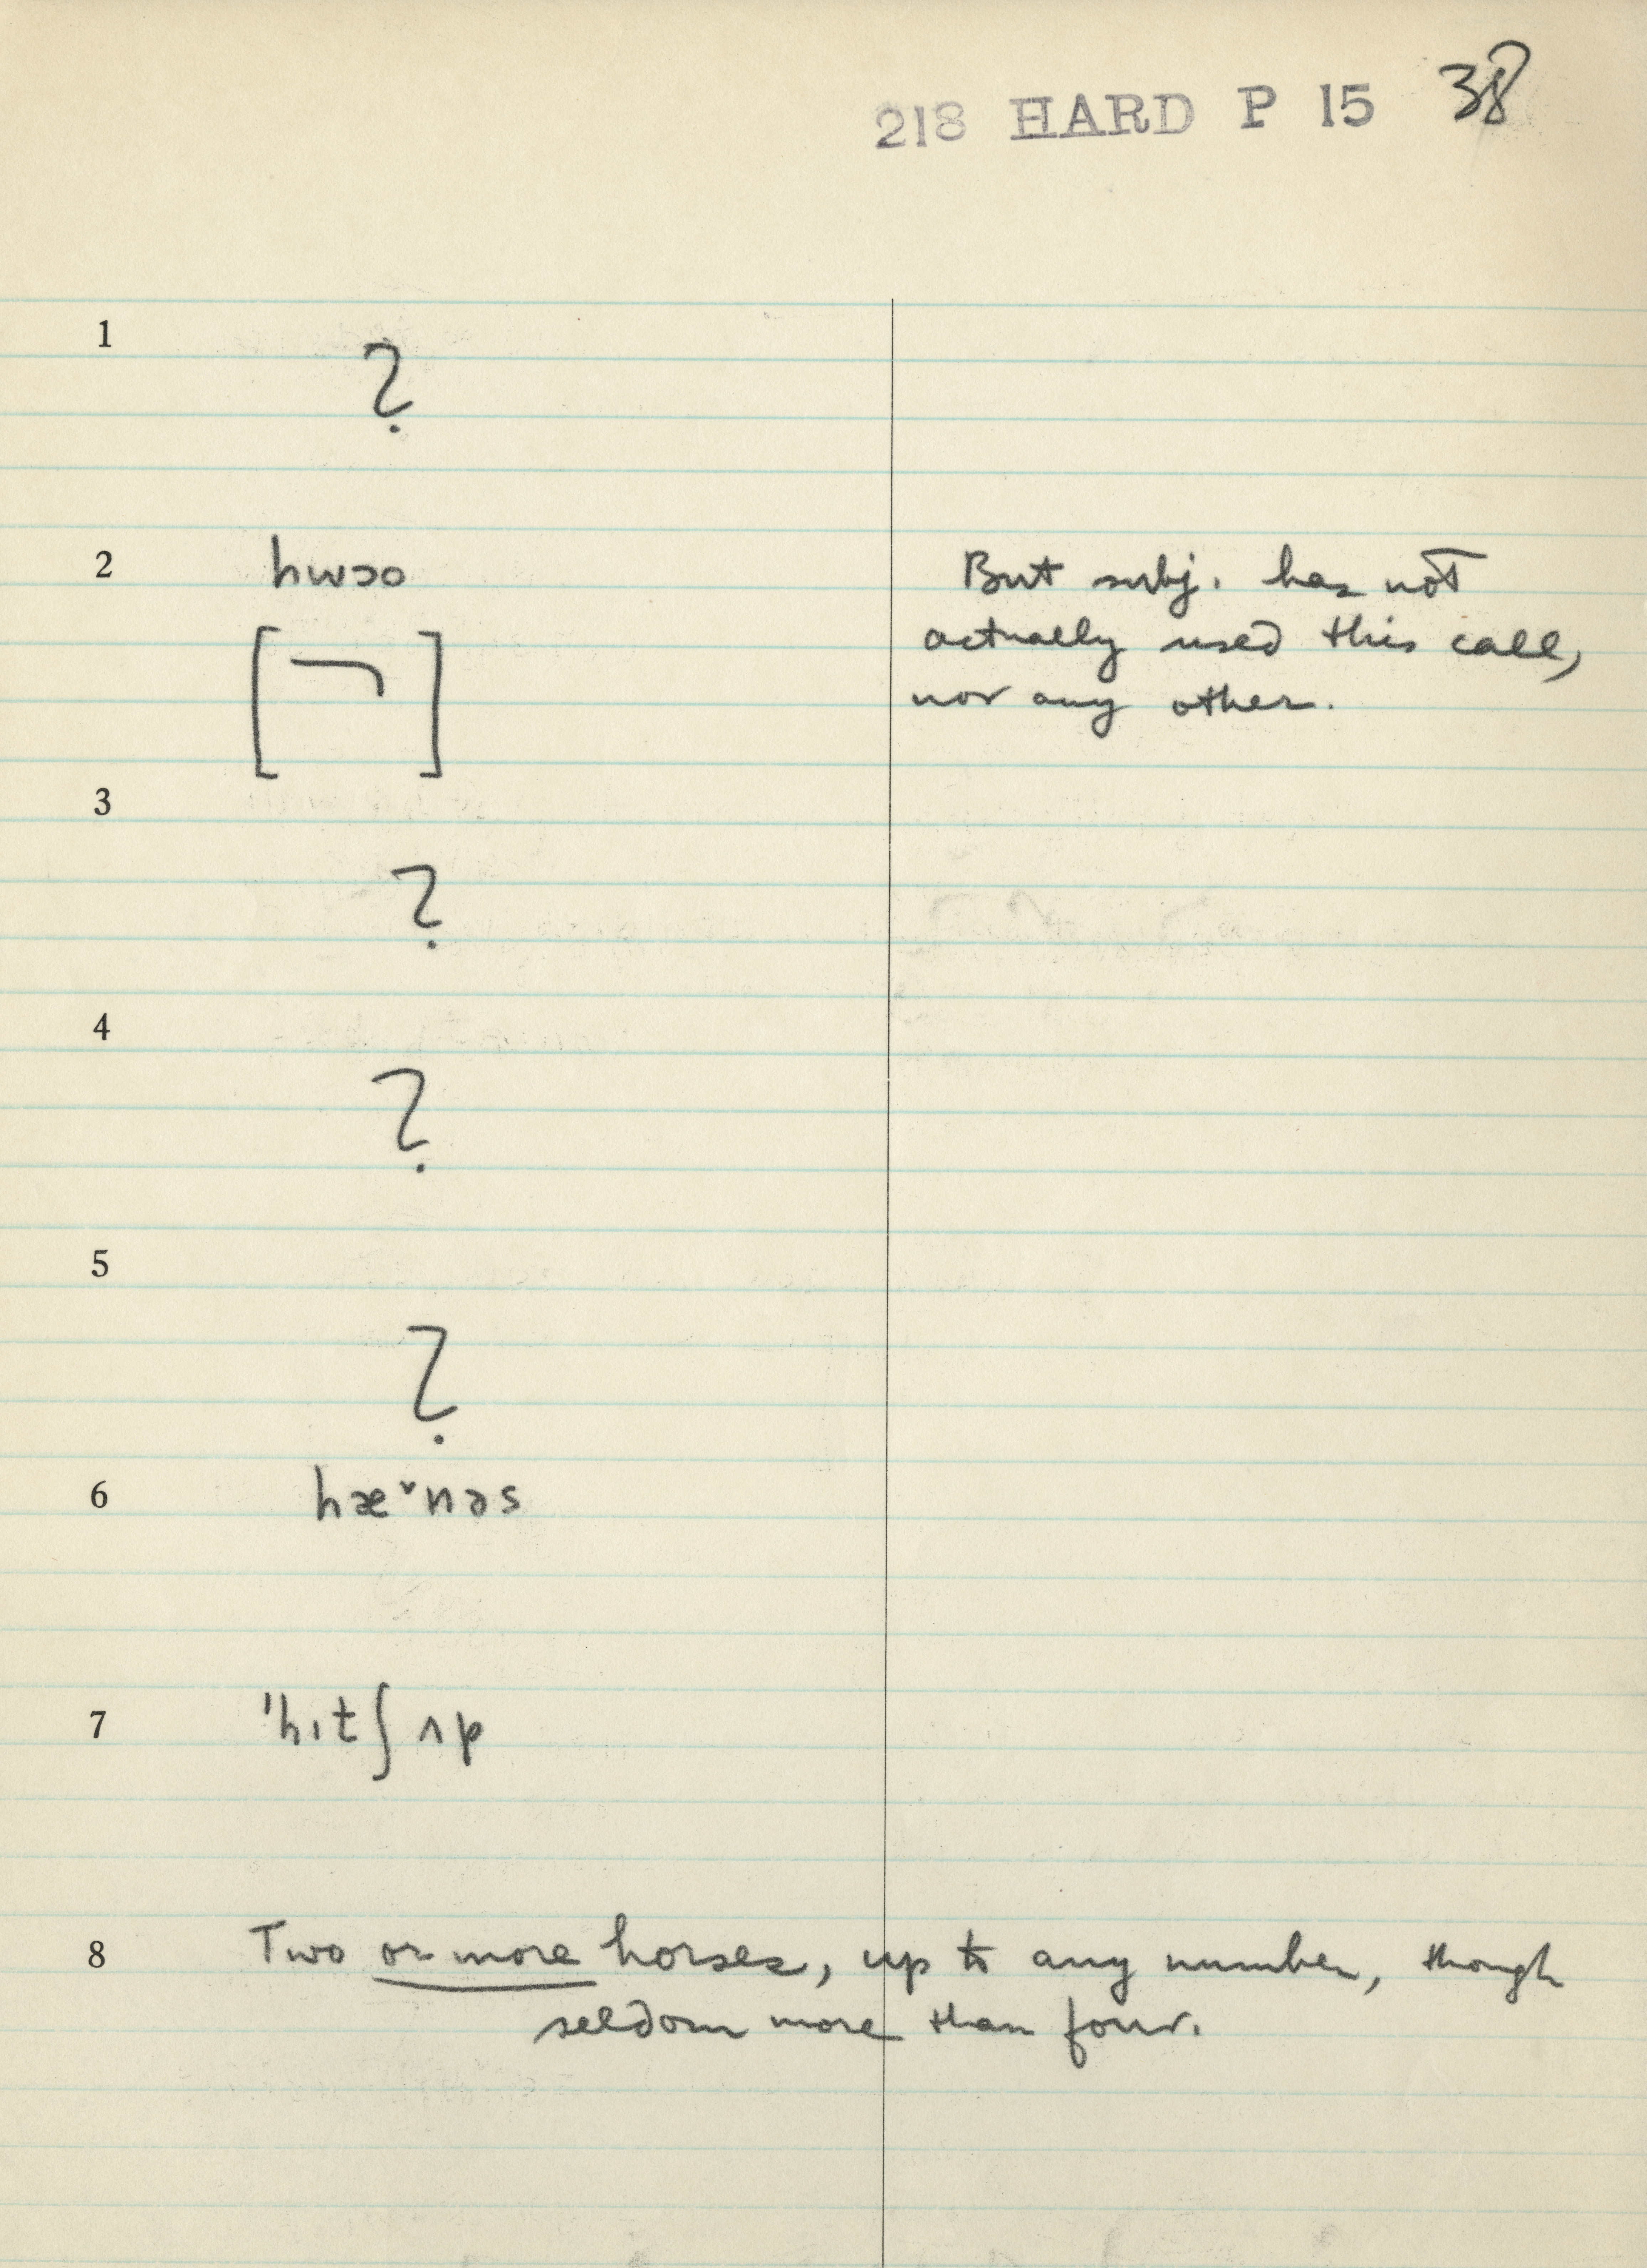 218 HARD P 15 38
1
?
2 hwɔo But subj. has not
actually used this call,
nor any other.
[ ]
3
?
4
?
5
?
6 hæ˅nəs
7 'hɪtʃ ʌp
8 Two or more horses, up to any number, though
seldom more than four.